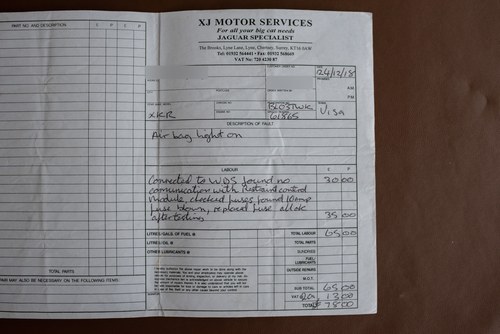 PART NO. AND DESCRIPTION
£ P £ P
TOTAL PARTS
PARTS MAY ALSO BE NECESSARY ON THE FOLLOWING ITEMS:
XJ MOTOR SERVICES
For all your big cat needs
JAGUAR SPECIALIST
The Brooks, Lyne Lane, Lyne, Chertsey, Surrey, KT16 0AW
VAT No: 720 4220 87
24/12/18
XKR
61865
Visa
DESCRIPTION OF FAULT
Air bag light on
LABOUR £ P
Connected to WDS found no 30 00
communication with restraint control
module, checked fuses, found 10amp
fuse blown, replaced fuse all ok
after testing 35 00
LITRES/GALS. OF FUEL @ TOTAL LABOUR 65 00
LITRES/OIL @ SUNDRIES
OTHER LUBRICANTS @ FUEL
LUBRICANTS
OUTSIDE REPAIRS
M.O.T.
SUB TOTAL 65 00
VAT @ 20% 13 00
TOTAL 78 00